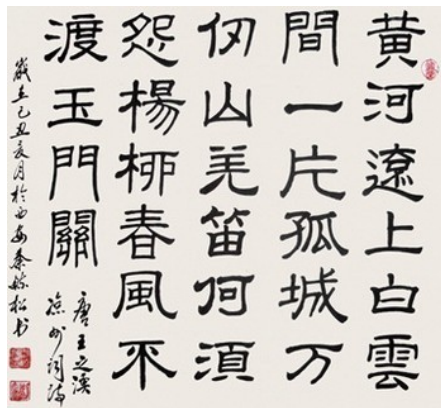 黄河遼上白雲
間一片孤城万
仞山羌笛何須
怨楊柳春風不
渡玉門關
唐王之渙
凉州词诗
歲在己丑夏月於西安秦毓松书